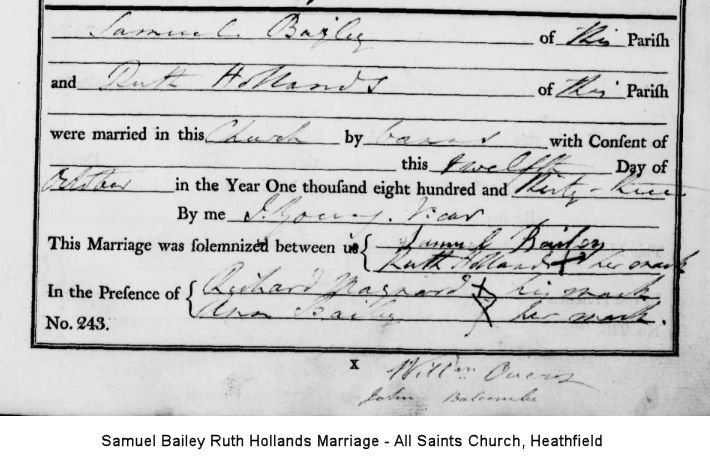 Samuel Bailey of this Pariſh
and Ruth Hollands of this Pariſh
were married in this Church by banns with Conſent of
this twelfth Day of
October in the Year One thouſand eight hundred and thirty-three
By me J. Young. Vicar
This Marriage was ſolemnized between us { Samuel Bailey
Ruth Hollands X her mark
In the Preſence of { Richard Maynard X his mark
Ann Bailey X her mark.
No. 243.
x
Will'm Owers
John Balcombe
Samuel Bailey Ruth Hollands Marriage - All Saints Church, Heathfield